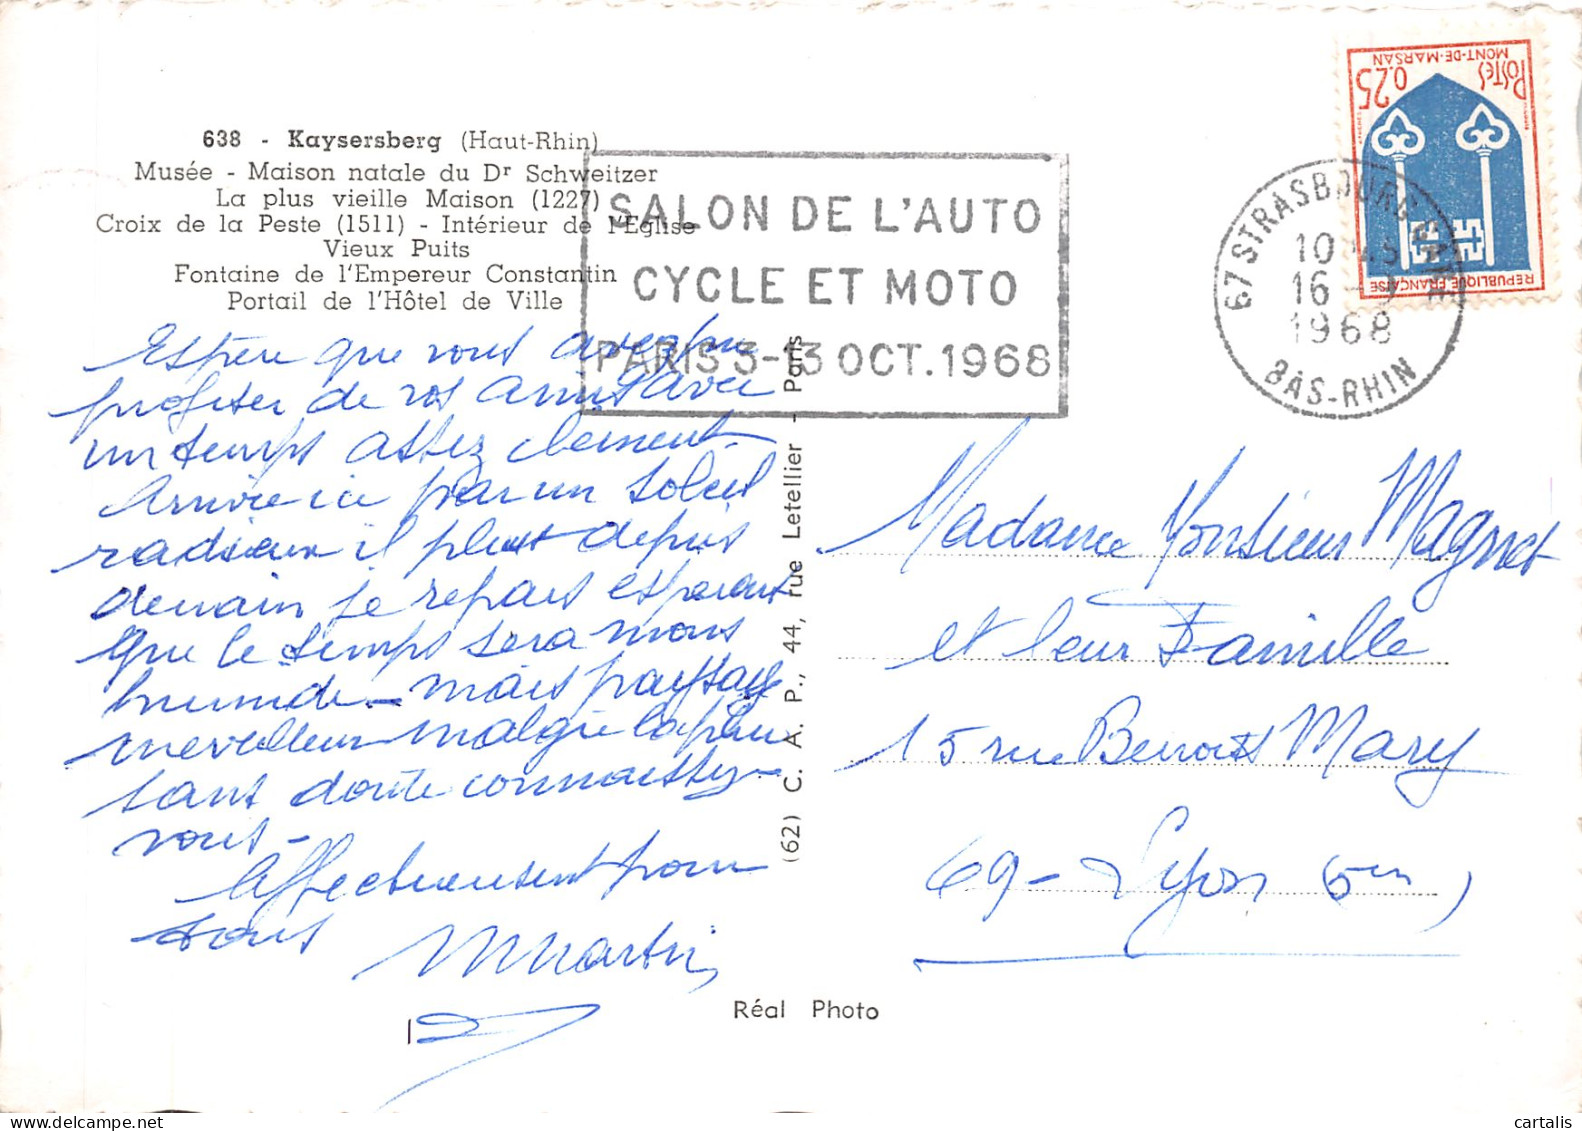 638 - Kaysersberg (Haut-Rhin)
Musée - Maison natale du Dr Schweitzer
La plus vieille Maison (1227)
Croix de la Peste (1511) - Intérieur de l'Eglise
Vieux Puits
Fontaine de l'Empereur Constantin
Portail de l'Hôtel de Ville
SALON DE L'AUTO
CYCLE ET MOTO
PARIS 3-13 OCT. 1968
67 STRASBOURG GARE
10
16 - 9
1968
BAS-RHIN
POSTES 0,25
MONT-DE-MARSAN
REPUBLIQUE FRANÇAISE
Espère que vous avez pu
profiter de vos amis avec
un temps assez clement
Arrivée ici par un soleil
radieux il pleut depuis
demain je repars esperant
que le temps sera moins
humide - mais paysage
merveilleux malgré la pluie
sans doute connaissez-
vous -
Affectueusement pour
tous
MMartin
(62) C. A. P., 44, rue Letellier - Paris
Madame Monsieur Magnet
et leur Famille
15 rue Benoist Mary
69 - Lyon (5me)
Réal Photo
cartalis